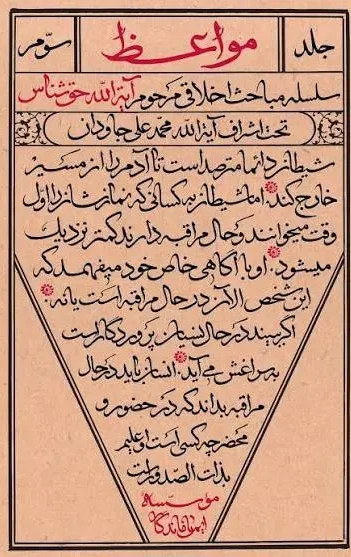 جلد
مواعظ
سوّم
سلسله مباحث اخلاقی مرحوم آیةالله حق‌شناس
تحت اشراف آیةالله محمدعلی جاودان
شیطان دائما مترصد است تا آدم را از مسیر
خارج کند. اما شیطان به کسانی که نمازشان را اول
وقت میخوانند و حال مراقبه دارند کمتر نزدیک
میشود. او با آگاهی خاص خود میفهمد که
این شخص الآن در حال مراقبه است یا نه.
اگر ببیند در حال انسان پروردگار است
به سراغش می‌آید. انسان باید در حال
مراقبه بداند که در حضور و
محضر چه کسی است او علیم
بذات الصدور است
مؤسسه
ایمان ماندگار